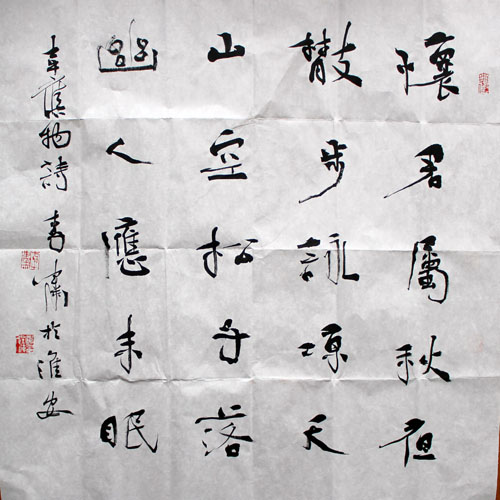 懷君屬秋夜
散步詠涼天
山空松子落
幽人應未眠
韋應物詩 青啸於淮安